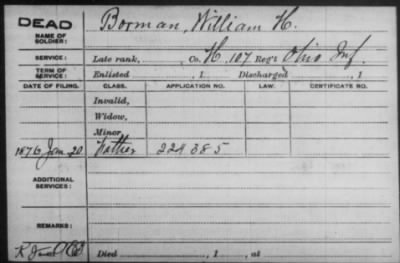 DEAD Borman, William H.
NAME OF SOLDIER:
SERVICE: Late rank, Co. H, 107 Reg't Ohio Inf.
TERM OF SERVICE: Enlisted , 1 Discharged , 1
DATE OF FILING. CLASS. APPLICATION NO. LAW. CERTIFICATE NO.
Invalid,
Widow,
Minor,
1876 Jan 20 Father 224385
ADDITIONAL SERVICES:
REMARKS:
Died , 1 , at